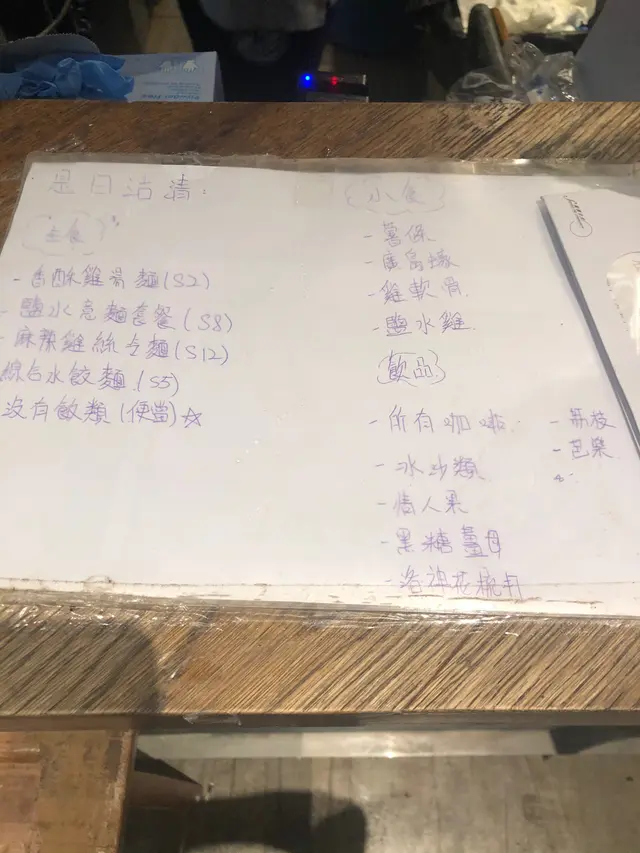 是日沽清:
主食
- 香酥雞滑麵(S2)
- 鹽水意麵套餐(S8)
- 麻辣雞絲冷麵(S12)
綜合水餃麵(S5)
沒有飯類(便當)☆
小食
- 薯條
- 雞軟骨
- 鹽水雞
飲品
- 所有咖啡
- 冰沙類
- 情人果
- 黑糖薑母
- 洛神花
- 荔枝
- 芭樂